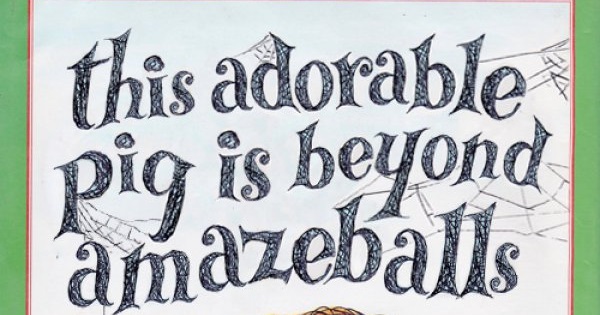 this adorable
pig is beyond
amazeballs